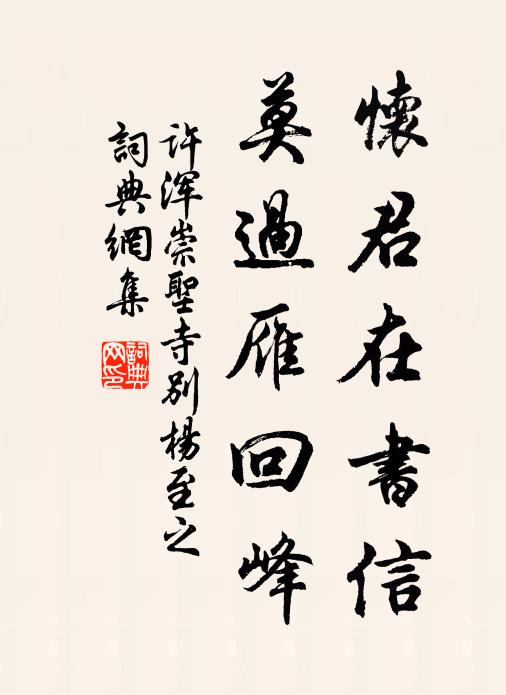 懷君在書信
莫過雁回峰
许浑崇聖寺别楊至之
詞典網集
詞典网印